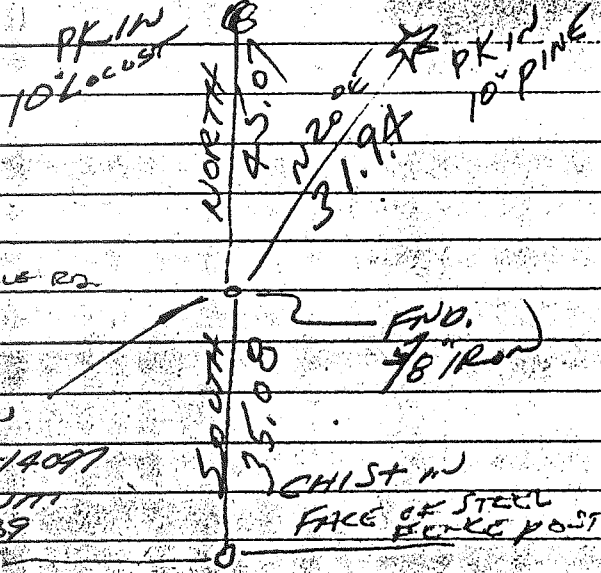 PK IN
10" LOCUST
NORTH
45.07
N20°E
31.94
PK IN
10" PINE
LE RD.
FND.
5/8" IRON
SOUTH
35.08
14097
39
CHIS + IN
FACE OF STEEL
FENCE POST